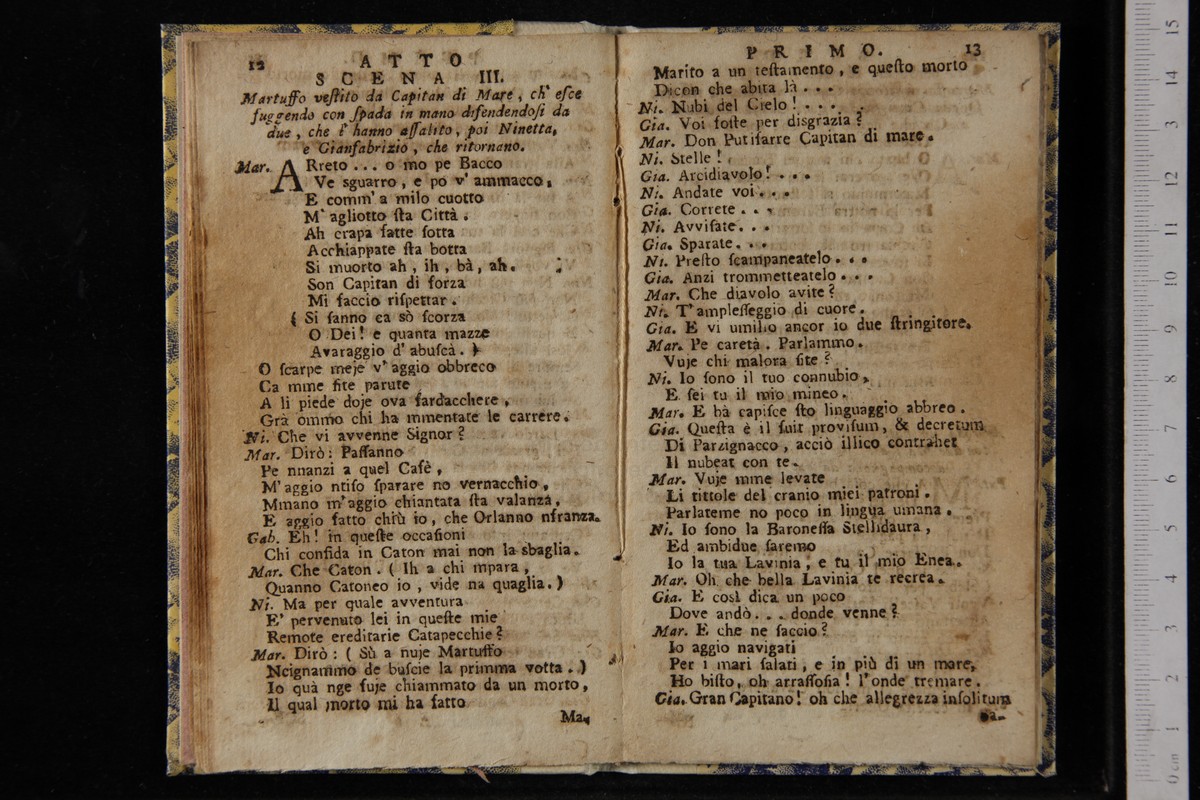 12
ATTO
SCENA III.
Martuffo veſtito da Capitan di Mare, ch' eſce
fuggendo con ſpada in mano difendendoſi da
due, che l' hanno aſſalito, poi Ninetta,
e Gianfabrizio, che ritornano.
Mar. ARreto ... o mo pe Bacco
Ve sguarro, e po v' ammacco,
E comm' a milo cuotto
M' agliotto ſta Città.
Ah crapa fatte ſotta
Acchiappate ſta botta
Si muorto ah, ih, bà, ah.
Son Capitan di forza
Mi faccio riſpettar.
( Si ſanno ca sò ſcorza
O Dei! e quanta mazze
Avaraggio d' abuſcà. )
O ſcarpe meje v' aggio obbreco
Ca mme ſite parute
A li piede doje ova fardacchere,
Grà ommo chi ha mmentate le carrere.
Ni. Che vi avvenne Signor?
Mar. Dirò: Paſſanno
Pe nnanzi a quel Cafè,
M' aggio ntiſo ſparare no vernacchio,
Mmano m' aggio chiantata ſta valanza,
E aggio fatto chiù io, che Orlanno nfranza.
Gab. Eh! in queſte occaſioni
Chi confida in Caton mai non la sbaglia.
Mar. Che Caton. ( Ih a chi mpara,
Quanno Catoneo io, vide na quaglia. )
Ni. Ma per quale avventura
E' pervenuto lei in queſte mie
Remote ereditarie Catapecchie?
Mar. Dirò: ( Sù a nuje Martuffo
Ncignammo de buſcie la primma votta. )
Io quà nge fuje chiammato da un morto,
Il qual morto mi ha fatto
Ma-
PRIMO.
13
Marito a un teſtamento, e queſto morto
Dicon che abita là ...
Ni. Nubi del Cielo! ...
Gia. Voi foſte per disgrazia?
Mar. Don Putifarre Capitan di mare.
Ni. Stelle!
Gia. Arcidiavolo! ...
Ni. Andate voi ...
Gia. Correte ...
Ni. Avviſate ...
Gia. Sparate ...
Ni. Preſto ſcampaneatelo ...
Gia. Anzi trommetteatelo ...
Mar. Che diavolo avite?
Ni. T' ampleſſeggio di cuore.
Gia. E vi umilio ancor io due ſtringitore.
Mar. Pe caretà. Parlammo.
Vuje chi malora ſite?
Ni. Io ſono il tuo connubio,
E ſei tu il mio mineo.
Mar. E bà capiſce ſto linguaggio abbreo.
Gia. Queſta è il fuit proviſum, & decretum
Di Parzignacco, acciò illico contrahet
Il nubeat con te.
Mar. Vuje mme levate
Li tittole del cranio miei patroni.
Parlateme no poco in lingua umana.
Ni. Io ſono la Baroneſſa Stellidaura,
Ed ambidue ſaremo
Io la tua Lavinia, e tu il mio Enea.
Mar. Oh che bella Lavinia te recrea.
Gia. E così dica un poco
Dove andò ... donde venne?
Mar. E che ne faccio?
Io aggio navigati
Per i mari ſalati, e in più di un mare,
Ho biſto, oh arraſſoſia! l' onde tremare.
Gia. Gran Capitano! oh che allegrezza inſolitum